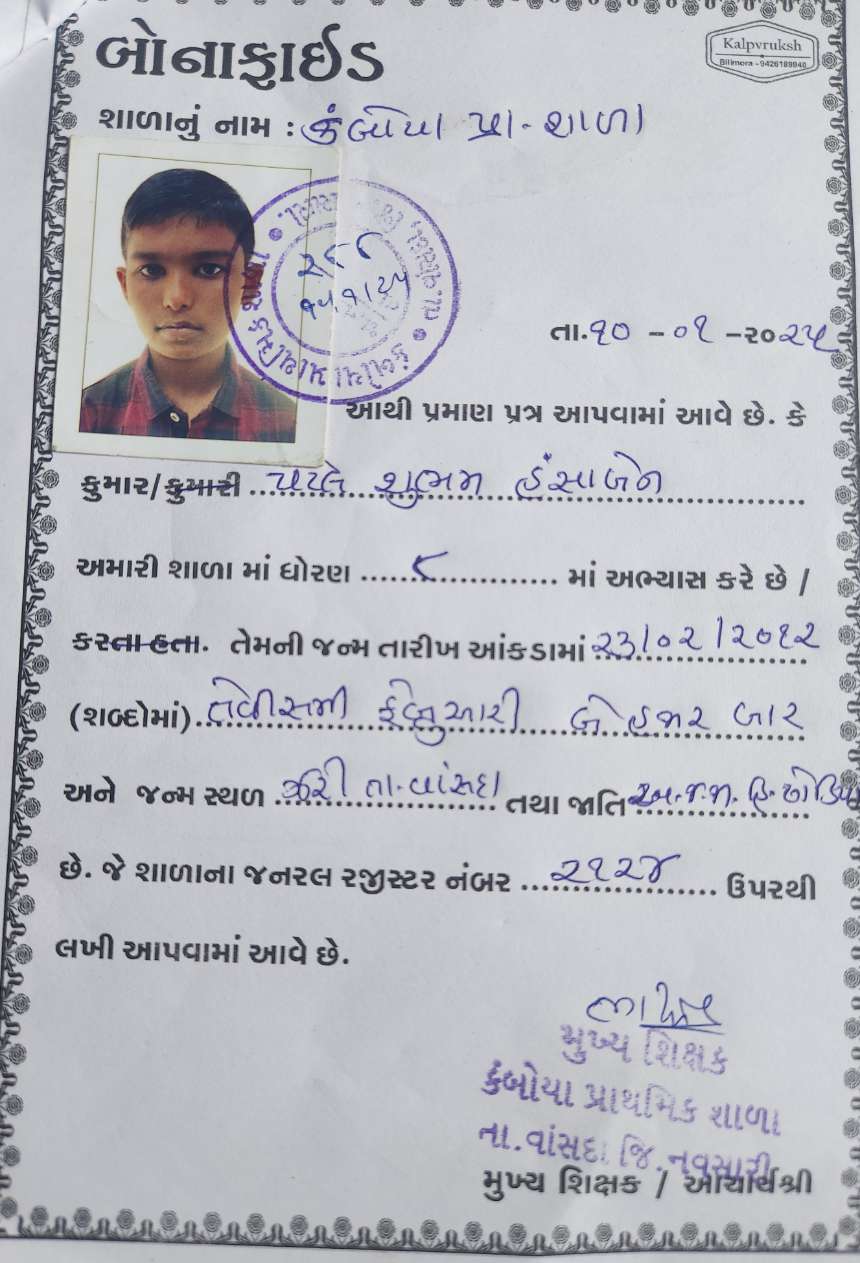 બોનાફાઈડ
Kalpvruksh
Bilimora - 9426189840
શાળાનું નામ : કંબોયા પ્રા-શાળા
તા.૧૦ -૦૧ -૨૦૨૫
આથી પ્રમાણ પત્ર આપવામાં આવે છે. કે
કુમાર/કુમારી પટેલ શુભમ હંસાબેન
અમારી શાળા માં ધોરણ ૮ માં અભ્યાસ કરે છે /
કરતા હતા. તેમની જન્મ તારીખ આંકડામાં ૨૩/૦૨/૨૦૧૨
(શબ્દોમાં) તેવીસમી ફેબ્રુઆરી બે હજાર બાર
અને જન્મ સ્થળ ઝરી તા-વાંસદા તથા જાતિ અ.જ.જા. હિ-ધોડિયા
છે. જે શાળાના જનરલ રજીસ્ટર નંબર ૨૧૨૪ ઉપરથી
લખી આપવામાં આવે છે.
મુખ્ય શિક્ષક
કંબોયા પ્રાથમિક શાળા
તા.વાંસદા જિ.નવસારી
મુખ્ય શિક્ષક / આચાર્યશ્રી